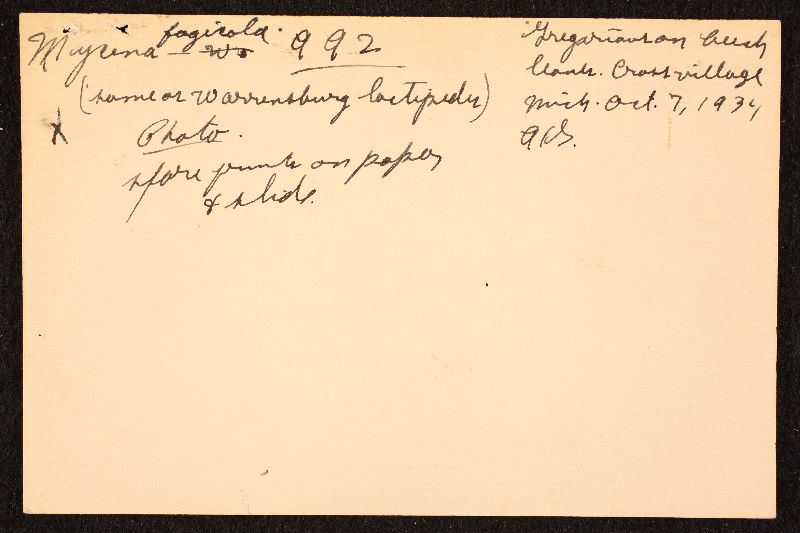 Mycena fagicola 992
(same as Warrensburg lactipedes)
X Photo.
spore prints on paper
& slide.
Gregarious on beech
leaves. Cross village
Mich. Oct. 7, 1934